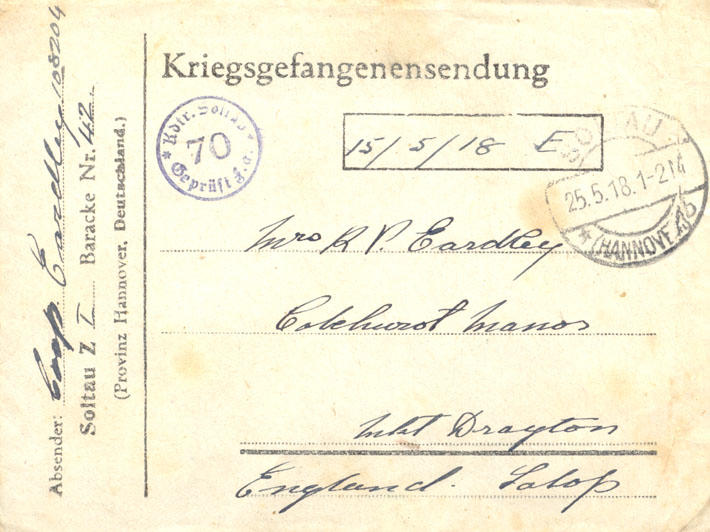 Absender: Corp. Eardley 108204
Soltau Z I Baracke Nr. 42
(Provinz Hannover, Deutschland.)
Kriegsgefangenensendung
Kdtr. Soltau
70
Geprüft F.a.
15/5/18 E
SOLTAU
25.5.18.1-2N
* (HANNOVER) b
Mrs R P. Eardley
Colehurst Manor
Mkt Drayton
England. Salop